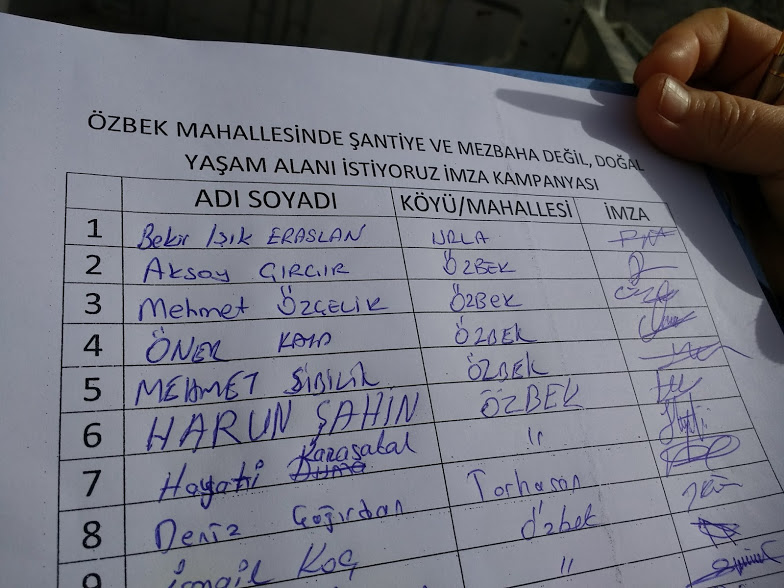 ÖZBEK MAHALLESİNDE ŞANTİYE VE MEZBAHA DEĞİL, DOĞAL
YAŞAM ALANI İSTİYORUZ İMZA KAMPANYASI
ADI SOYADI KÖYÜ/MAHALLESİ İMZA
1 Bekir Işık ERASLAN URLA
2 Aksoy GIRGIR ÖZBEK
3 Mehmet ÖZÇELİK ÖZBEK
4 ÖNER KAYA ÖZBEK
5 MEHMET SİBİLİK ÖZBEK
6 HARUN ŞAHİN ÖZBEK
7 Hayati Karaşakal "
8 Deniz Torhasan
9 İsmail Koç özbek
"